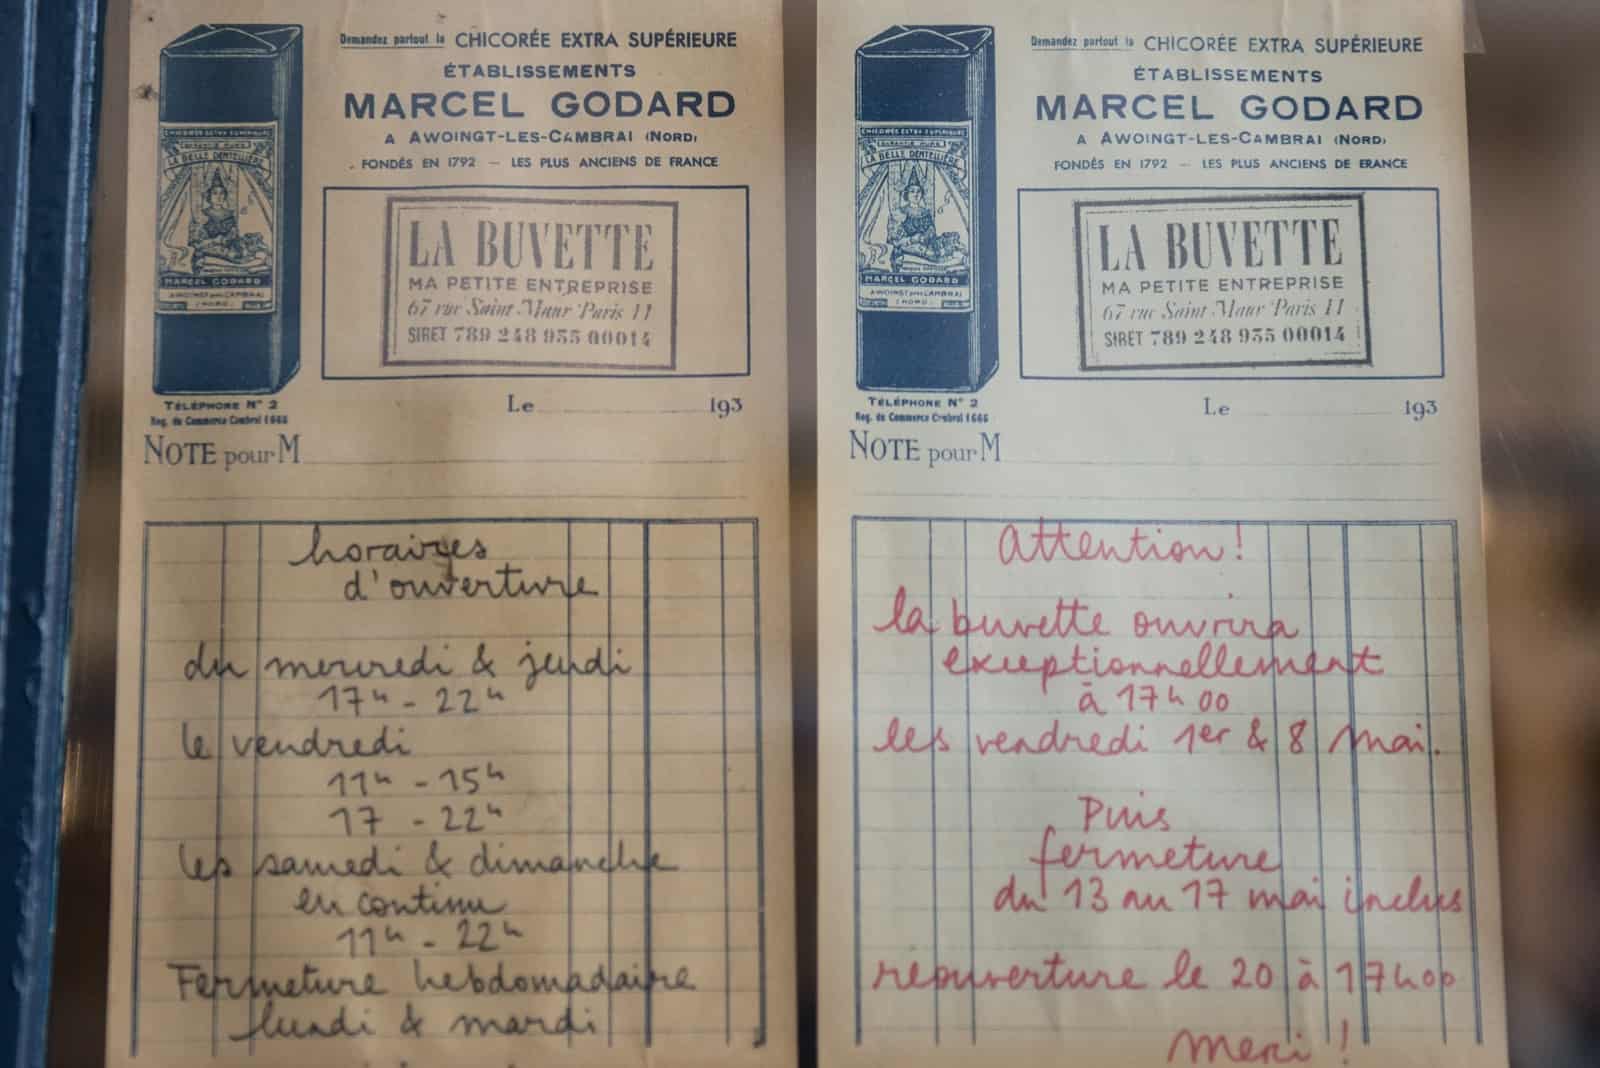 Demandez partout la CHICORÉE EXTRA SUPÉRIEURE
ÉTABLISSEMENTS
MARCEL GODARD
A AWOINGT-LES-CAMBRAI (NORD)
FONDÉS EN 1792 — LES PLUS ANCIENS DE FRANCE
CHICORÉE EXTRA SUPÉRIEURE
LA BELLE DENTELLIÈRE
MARCEL GODARD
AWOINGT près CAMBRAI
(NORD)
LA BUVETTE
MA PETITE ENTREPRISE
67 rue Saint Maur Paris 11
SIRET 789 248 935 00014
TÉLÉPHONE N° 2
Reg. du Commerce Cambrai 1666
Le 193
NOTE pour M
horaires
d'ouverture
du mercredi & jeudi
17h - 22h
le vendredi
11h - 15h
17 - 22h
les samedi & dimanche
en continu
11h - 22h
Fermeture hebdomadaire
lundi & mardi
Demandez partout la CHICORÉE EXTRA SUPÉRIEURE
ÉTABLISSEMENTS
MARCEL GODARD
A AWOINGT-LES-CAMBRAI (NORD)
FONDÉS EN 1792 — LES PLUS ANCIENS DE FRANCE
CHICORÉE EXTRA SUPÉRIEURE
LA BELLE DENTELLIÈRE
MARCEL GODARD
AWOINGT près CAMBRAI
(NORD)
LA BUVETTE
MA PETITE ENTREPRISE
67 rue Saint Maur Paris 11
SIRET 789 248 935 00014
TÉLÉPHONE N° 2
Reg. du Commerce Cambrai 1666
Le 193
NOTE pour M
Attention !
la buvette ouvrira
exceptionnellement
à 17h00
les vendredi 1er & 8 mai.
Puis
fermeture
du 13 au 17 mai inclus
reouverture le 20 à 17h00
Merci !